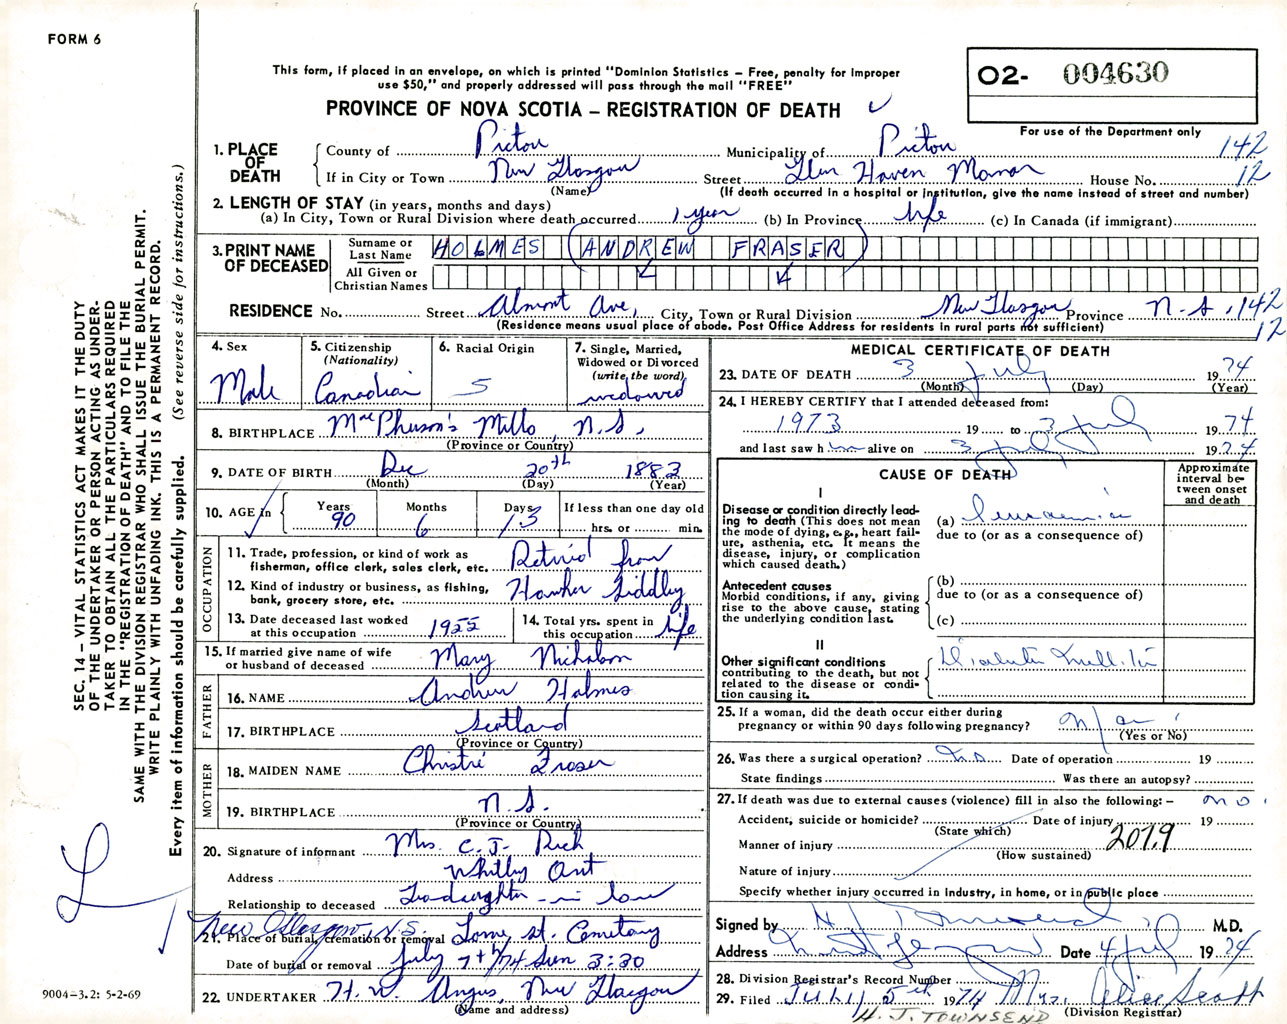 FORM 6
This form, if placed in an envelope, on which is printed "Dominion Statistics – Free, penalty for improper
use $50," and properly addressed will pass through the mail "FREE"
O2- 004630
PROVINCE OF NOVA SCOTIA – REGISTRATION OF DEATH
For use of the Department only
1. PLACE OF DEATH
County of Pictou Municipality of Pictou 142
If in City or Town New Glasgow Street Glen Haven Manor House No. 12
(Name) (If death occurred in a hospital or institution, give the name instead of street and number)
2. LENGTH OF STAY (in years, months and days)
(a) In City, Town or Rural Division where death occurred 1 year (b) In Province life (c) In Canada (if immigrant)
3. PRINT NAME OF DECEASED
Surname or Last Name HOLMES (ANDREW FRASER)
All Given or Christian Names
RESIDENCE No. Street Almont Ave, City, Town or Rural Division New Glasgow Province N.S. 142
(Residence means usual place of abode. Post Office Address for residents in rural parts not sufficient) 12
4. Sex Male
5. Citizenship (Nationality) Canadian
6. Racial Origin 5
7. Single, Married, Widowed or Divorced (write the word) widowed
8. BIRTHPLACE MacPherson's Mills, N.S.
(Province or Country)
9. DATE OF BIRTH Dec 20th 1883
(Month) (Day) (Year)
10. AGE in Years 90 Months 6 Days 13 If less than one day old hrs. or min.
OCCUPATION
11. Trade, profession, or kind of work as fisherman, office clerk, sales clerk, etc. Retired from
12. Kind of industry or business, as fishing, bank, grocery store, etc. Hawker Siddley
13. Date deceased last worked at this occupation 1955
14. Total yrs. spent in this occupation life
15. If married give name of wife or husband of deceased Mary Nicholson
FATHER
16. NAME Andrew Holmes
17. BIRTHPLACE Scotland
(Province or Country)
MOTHER
18. MAIDEN NAME Christie Fraser
19. BIRTHPLACE N.S.
(Province or Country)
20. Signature of informant Mrs. C. J. Rich
Address Whitby Ont
Relationship to deceased in law
New Glasgow, N.S.
21. Place of burial, cremation or removal Lorne St. Cemetary
Date of burial or removal July 7th/74 Sun 3:30
22. UNDERTAKER H. W. Angus, New Glasgow
(Name and address)
MEDICAL CERTIFICATE OF DEATH
23. DATE OF DEATH 3 July 1974
(Month) (Day) (Year)
24. I HEREBY CERTIFY that I attended deceased from:
1973 19 to 3 July 1974
and last saw him alive on 3 July 1974
CAUSE OF DEATH
Approximate interval between onset and death
I
Disease or condition directly leading to death (This does not mean the mode of dying, e.g., heart failure, asthenia, etc. It means the disease, injury, or complication which caused death.)
(a)
due to (or as a consequence of)
Antecedent causes
Morbid conditions, if any, giving rise to the above cause, stating the underlying condition last.
(b)
due to (or as a consequence of)
(c)
II
Other significant conditions contributing to the death, but not related to the disease or condition causing it.
Diabetes Mellitis
25. If a woman, did the death occur either during pregnancy or within 90 days following pregnancy?
(Yes or No)
26. Was there a surgical operation? No Date of operation 19
State findings Was there an autopsy?
27. If death was due to external causes (violence) fill in also the following: – no.
Accident, suicide or homicide? Date of injury 19
(State which) 2019
Manner of injury
(How sustained)
Nature of injury
Specify whether injury occurred in industry, in home, or in public place
Signed by H J Townsend M.D.
Address New Glasgow Date 4 July 1974
28. Division Registrar's Record Number
29. Filed July 5th 1974 Mrs. Alice Scott
(Division Registrar)
H. J. TOWNSEND
SEC. 14 – VITAL STATISTICS ACT MAKES IT THE DUTY
OF THE UNDERTAKER OR PERSON ACTING AS UNDERTAKER
TO OBTAIN ALL THE PARTICULARS REQUIRED
IN THE "REGISTRATION OF DEATH" AND TO FILE THE
SAME WITH THE DIVISION REGISTRAR WHO SHALL ISSUE THE BURIAL PERMIT.
WRITE PLAINLY WITH UNFADING INK. THIS IS A PERMANENT RECORD.
Every item of information should be carefully supplied. (See reverse side for instructions.)
9004–3.2: 5-2-69